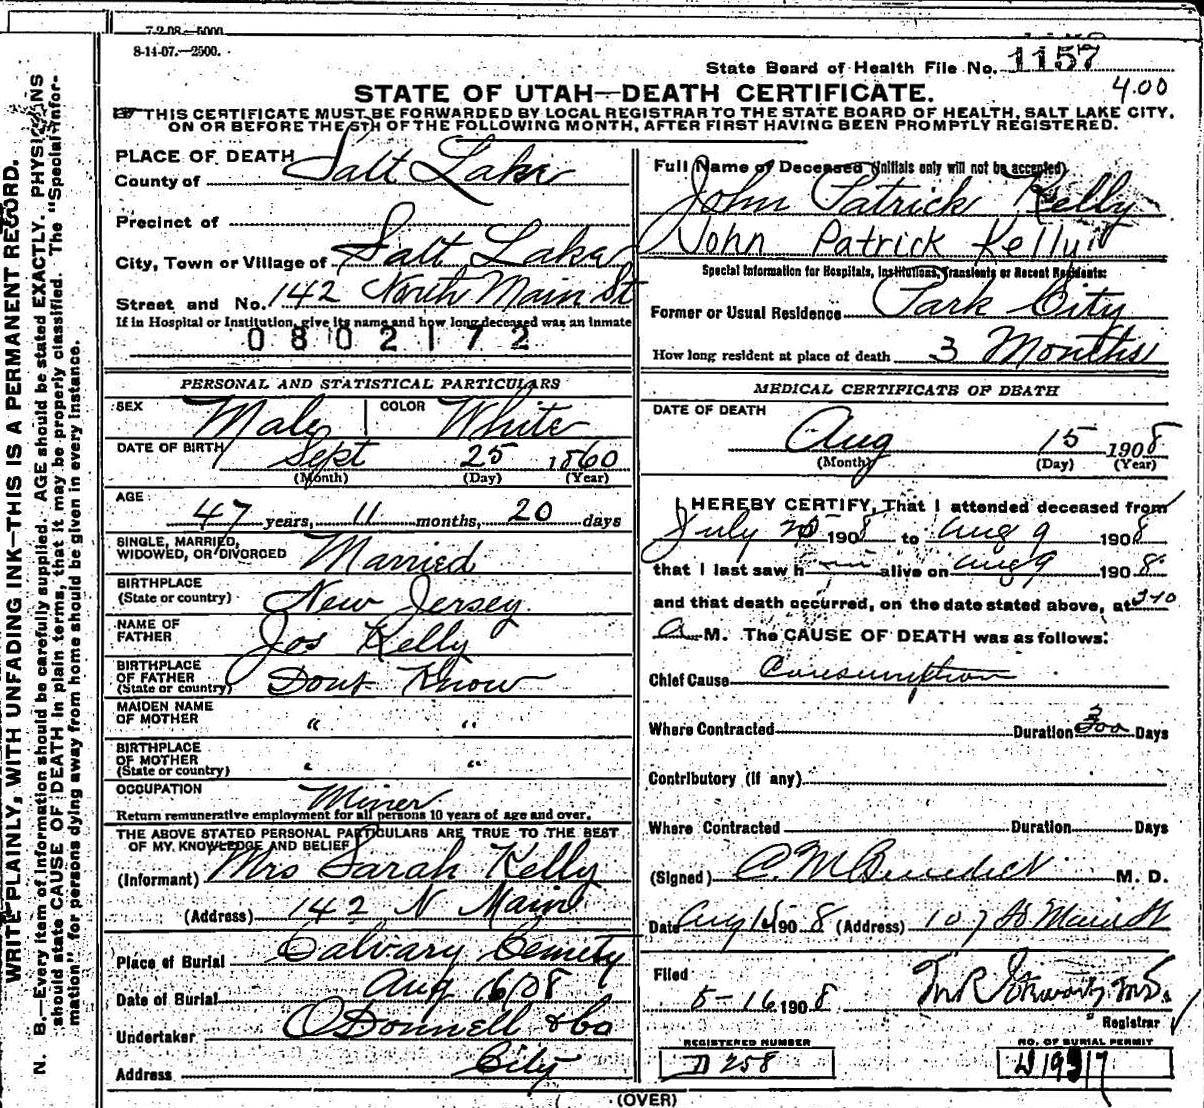 7-2-08.—5000.
8-14-07.—2500.
State Board of Health File No. 1157
4.00
STATE OF UTAH—DEATH CERTIFICATE.
THIS CERTIFICATE MUST BE FORWARDED BY LOCAL REGISTRAR TO THE STATE BOARD OF HEALTH, SALT LAKE CITY,
ON OR BEFORE THE 5TH OF THE FOLLOWING MONTH, AFTER FIRST HAVING BEEN PROMPTLY REGISTERED.
WRITE PLAINLY, WITH UNFADING INK—THIS IS A PERMANENT RECORD.
N. B.—Every item of information should be carefully supplied. AGE should be stated EXACTLY. PHYSICIANS
should state CAUSE OF DEATH in plain terms, that it may be properly classified. The "Special Infor-
mation" for persons dying away from home should be given in every instance.
PLACE OF DEATH
County of Salt Lake
Precinct of
City, Town or Village of Salt Lake
Street and No. 142 North Main St
If in Hospital or Institution, give its name and how long deceased was an inmate
0802172
PERSONAL AND STATISTICAL PARTICULARS
SEX Male COLOR White
DATE OF BIRTH Sept 25 1860
(Month) (Day) (Year)
AGE
47 years, 11 months, 20 days
SINGLE, MARRIED,
WIDOWED, OR DIVORCED Married
BIRTHPLACE
(State or country) New Jersey
NAME OF
FATHER Jos Kelly
BIRTHPLACE
OF FATHER
(State or country) Dont Know
MAIDEN NAME
OF MOTHER " "
BIRTHPLACE
OF MOTHER
(State or country) " "
OCCUPATION Miner
Return remunerative employment for all persons 10 years of age and over.
THE ABOVE STATED PERSONAL PARTICULARS ARE TRUE TO THE BEST
OF MY KNOWLEDGE AND BELIEF
(Informant) Mrs Sarah Kelly
(Address) 142 N Main
Place of Burial Calvary Cemety
Date of Burial Aug 16/08
Undertaker O'Donnell & Co
Address City
Full Name of Deceased (Initials only will not be accepted)
John Patrick Kelly
John Patrick Kelly
Special Information for Hospitals, Institutions, Transients or Recent Residents:
Former or Usual Residence Park City
How long resident at place of death 3 Months
MEDICAL CERTIFICATE OF DEATH
DATE OF DEATH
Aug 15 1908
(Month) (Day) (Year)
I HEREBY CERTIFY, That I attended deceased from
July 25 1908 to Aug 9 1908
that I last saw h im alive on Aug 9 1908
and that death occurred, on the date stated above, at 3-10
A M. The CAUSE OF DEATH was as follows:
Chief Cause Consumption
Where Contracted Duration 300 Days
Contributory (if any)
Where Contracted Duration Days
(Signed) C. M. Benedict M. D.
Date Aug 15 1908 (Address) 107 So Main St
Filed
8-16 1908
Registrar
REGISTERED NUMBER
D 258
NO. OF BURIAL PERMIT
(OVER)